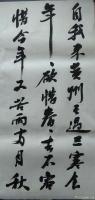 自我來黃州已過三寒食
年々欲惜春々去不容
惜今年又苦雨兩月秋